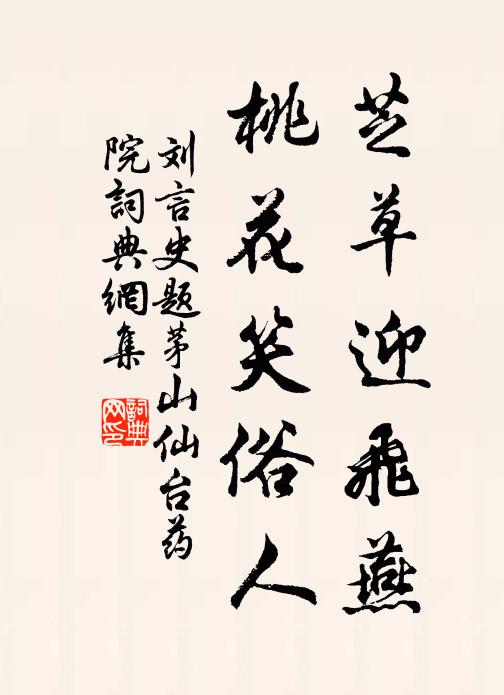 芝草迎飛燕
桃花笑俗人
刘言史题茅山仙台药
院詞典網集
詞典網印